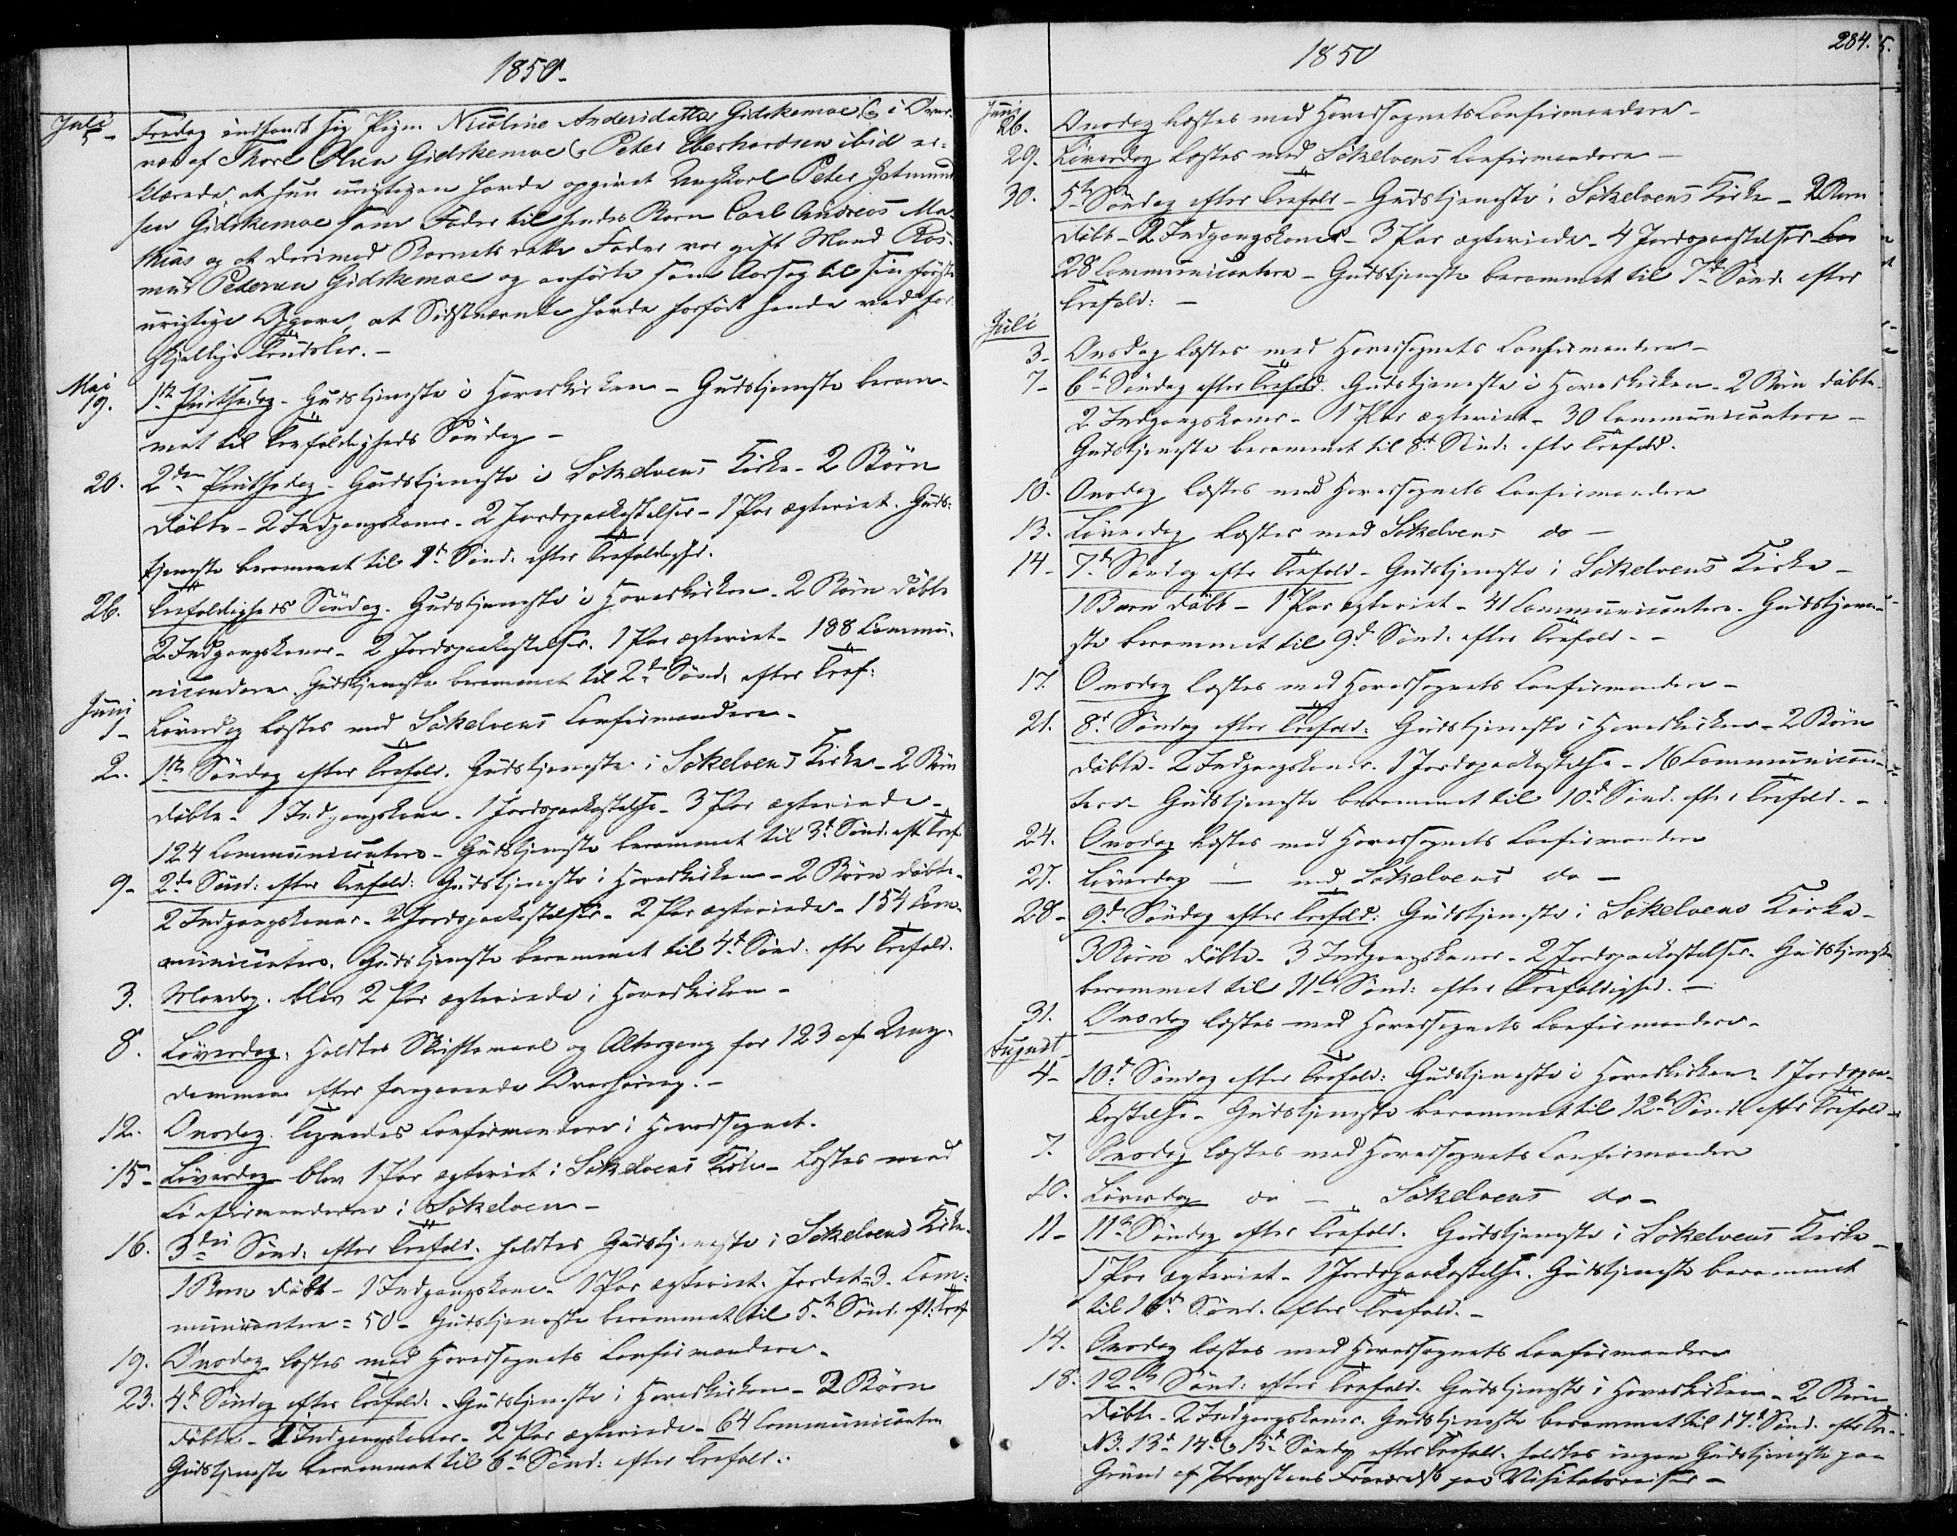 1850.
Juli
5- Fredag indfandt sig Pigen Nicoline Andersdatter Gidskemoe & i Over-
vær af Thore Olsen Gidskemoe & Peter Eberhardsen ibid er-
klærede, at hun urigtigen havde opgivet Ungkarl Peter Jetmund-
sen Gidskemoe som Fader til hendes Barn Carl Andreas Ma-
thias og at derimod Barnets rette Fader var gift Mand Ras-
mus Pedersen Gidskemoe og anførte som Aarsag til sin første
urigtige Opgave, at Sidstnævnte havde forført hende ved for-
skjellige Trudsler.-
Mai
19. 1ste Pintsedag- Gudstjeneste i Hovedkirken- Gudstjeneste beram-
met til Trefoldigheds Søndag-
20. 2den Pintsedag- Gudstjeneste i Søkelvens Kirke- 2 Børn
døbte- 2 Indgangskoner- 2 Jordspaakastelser- 1 Par ægteviet. Guds-
tjeneste berammet til 1ste Sønd. efter Trefoldighed.
26. Trefoldigheds Søndag. Gudstjeneste i Hovedkirken- 2 Børn døbte
2 Indgangskoner- 2 Jordspaakastelser. 1 Par ægteviet- 188 Commu-
nicantere. Gudstjeneste berammet til 2den Sønd. efter Tref:
Juni
1- Løverdag læstes med Søkelvens Confirmandere-
2. 1ste Søndag efter Trefold. Gudstjeneste i Søkelvens Kirke- 2 Børn
døbte- 1 Indgangskone- 1 Jordspaakastelse- 3 Par ægteviede-
124 Communicantere- Gudstjeneste berammet til 3d Sønd. eft. Tref.
9- 2den Sønd: efter Trefold: Gudstjeneste i Hovedkirken- 2 Børn døbte-
2 Indgangskoner- 2 Jordspaakastelser- 2 Par ægteviede- 154 Com-
municantere. Gudstjeneste berammet til 4d Sønd. efter Trefold.
3. Mandag. blev 2 Par ægteviede i Hovedkirken-
8. Løverdag. holdtes Skriftemaal og Altergang for 123 af Ung-
dommen efter foregaaende Overhøring.-
12. Onsdag. tegnedes Confirmandere i Hovedsognet.
15- Løverdag blev 1 Par ægteviet i Søkelvens Kirke- læstes med
Confirmanderne i Søkelven-
16. 3die Sønd: efter Trefold. holdtes Gudstjeneste i Søkelvens Kirke-
1 Barn døbt- 1 Indgangskone- 1 Par ægteviet. Jordet=3. Com-
municantere= 50- Gudstjeneste berammet til 5te Sønd. eft. Tref
19. Onsdag læstes med Hovedsognets Confirmandere-
23. 4d Søndag efter Trefold: Gudstjeneste i Hovedkirken- 2 Børn
døbte- 1 Indgangskoner- 2 Par ægteviede- 64 Communicantere
Gudstjeneste berammet til 6te Sønd: efter Trefold..
1850
284.
Juni
26. Onsdag læstes med Hovedsognets Confirmandere-
29. Løverdag læstes med Søkelvens Confirmandere-
30. 5te Søndag efter Trefold- Gudstjeneste i Søkelvens Kirke- 2 Børn
døbt- 2 Indgangskoner- 3 Par ægteviede- 4 Jordspaakastelser
28 Communicantere- Gudstjeneste berammet til 7d Sønd. efter
Trefold:-
Juli
3- Onsdag læstes med Hovedsognets Confirmandere-
7- 6te Søndag efter Trefold. Gudstjeneste i Hovedkirken- 2 Børn døbte-
2 Indgangskoner- 1 Par ægteviet- 30 Communicantere-
Gudstjeneste berammet til 8d Sønd. efter Trefold.
10. Onsdag læstes med Hovedsognets Confirmandere
13. Løverdag læstes med Søkelvens do-
14- 7d Søndag efter Trefold- Gudstjeneste i Søkelvens Kirke-
1 Barn døbt- 1 Par ægteviet- 41 Communicantere. Gudstjene-
ste berammet til 9d Sønd. efter Trefold.-
17. Onsdag læstes med Hovedsognets Confirmandere-
21. 8d Søndag efter Trefold: Gudstjeneste i Hovedkirken- 2 Børn
døbte. 2 Indgangskoner. 1 Jordspaakastelse- 16 Communican-
tere- Gudstjeneste berammet til 10d Sønd. efter Trefold.-
24. Onsdag læstes med Hovedsognets Confirmandere
27. Løverdag — med Søkelvens do-
28- 9d Søndag efter Trefold: Gudstjeneste i Søkelvens Kirke-
3 Børn døbte- 3 Indgangskoner- 2 Jordspaakastelser- Gudstjeneste
berammet til 11te Sønd: efter Trefoldighed.-
31. Onsdag læstes med Hovedsognets Confirmandere-
August
4- 10d Søndag efter Trefold: Gudstjeneste i Hovedkirken- 1 Jordspaa-
kastelse- Gudstjeneste berammet til 12te Sønd. efter Trefold-
7. Onsdag læstes med Hovedsognets Confirmandere
10. Løverdag do - Søkelvens do-
11- 11te Søndag efter Trefold. Gudstjeneste i Søkelvens Kirke-
1 Par ægteviet- 1 Jordspaakastelse. Gudstjeneste berammet
til 16d Sønd. efter Trefold.-
14. Onsdag læstes med Hovedsognets Confirmandere
18. 12te Sønd: efter Trefold. Gudstjeneste i Hovedkirken- 2 Børn
døbte- 2 Indgangskoner. Gudstjeneste berammet til 17d Sønd. efter Tr.
NB. 13d 14d & 15d Søndag efter Trefold. holdtes ingen Gudstjeneste paa
Grund af Provstens Fraværelse paa Visitatsreiser-